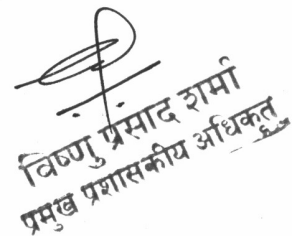 विष्णु प्रसाद शर्मा
प्रमुख प्रशासकीय अधिकृत